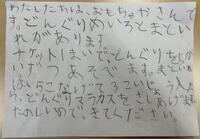 わたしたちは、おもちゃやさんで
す。どんぐりめいろとまとい
れがあります。
チケット1まいで、どんぐり
いけつあそべます。まといれ
は
らどんぐりマラカスをさしあげます
たのしいので、きてください。